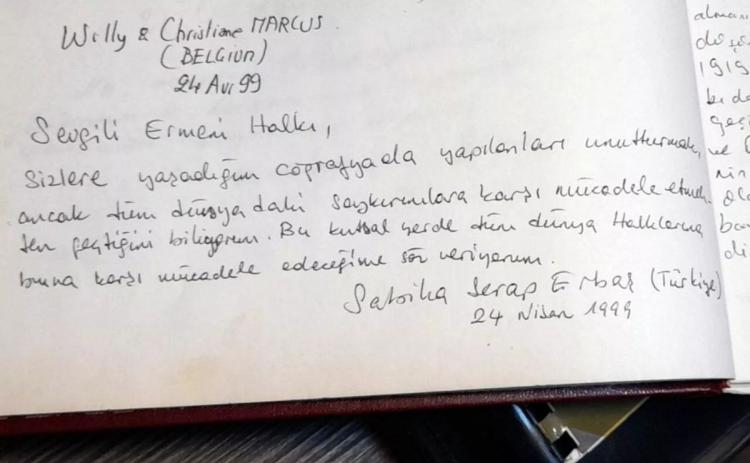 Willy & Christiane MARCUS
(BELGIUM)
24 Avr 99
Sevgili Ermeni Halkı,
Sizlere yaşadığım coğrafyada yapılanları unutturmak,
ancak tüm dünyadaki soykırımlara karşı mücadele etmek-
ten geçtiğini biliyorum. Bu kutsal yerde tüm dünya Halklarına
buna karşı mücadele edeceğime söz veriyorum.
Sabiha Serap Erbaş (Türkiye)
24 Nisan 1999
1919